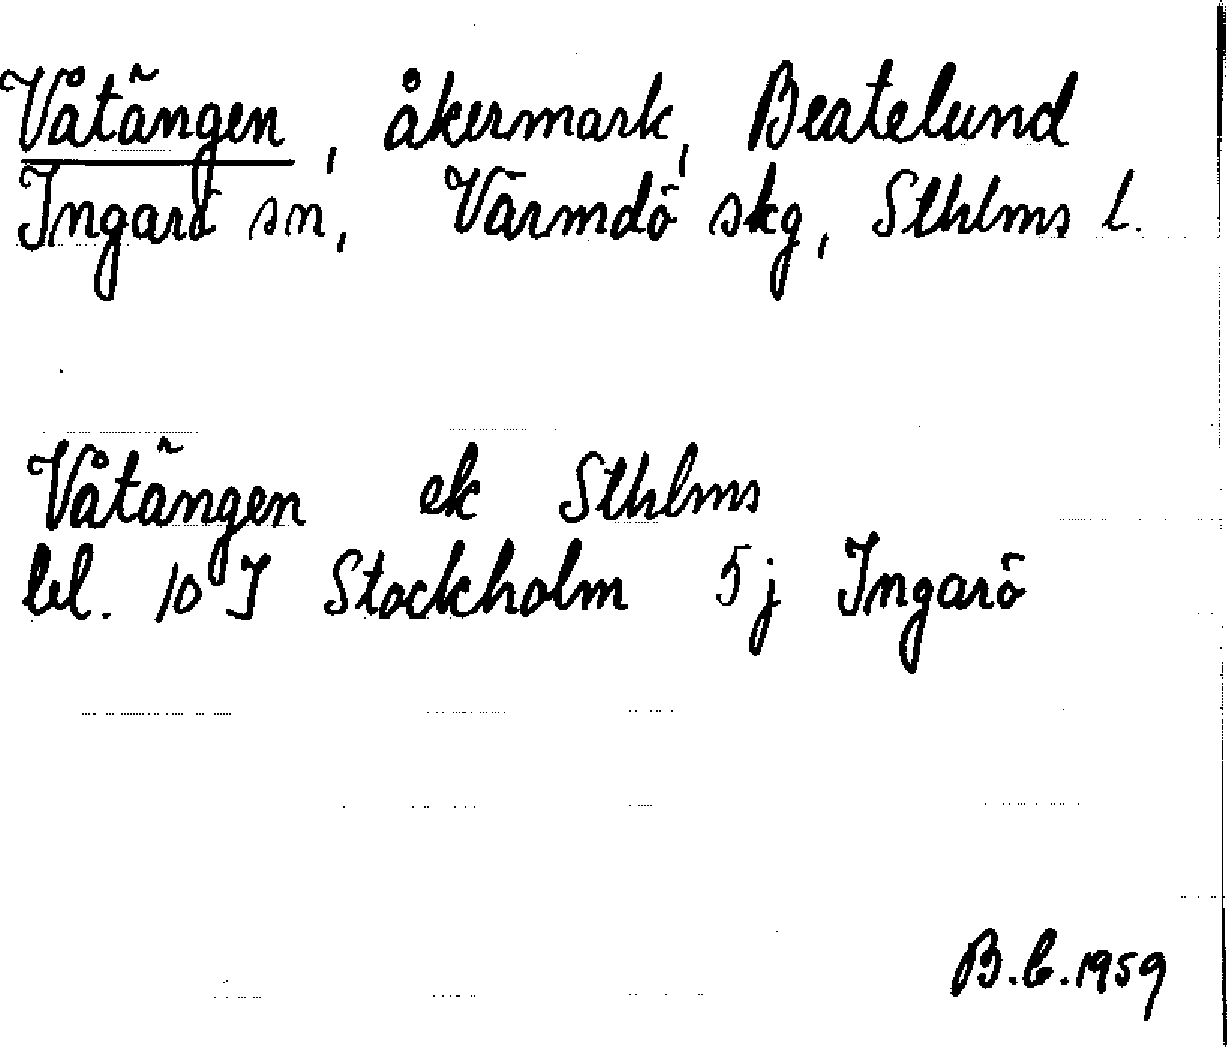 Våtängen, åkermark, Beatelund
Ingarö sn, Värmdö skg, Sthlms l.
Våtängen ek Sthlms
bl. 10 I Stockholm 5j Ingarö
B.C. 1959